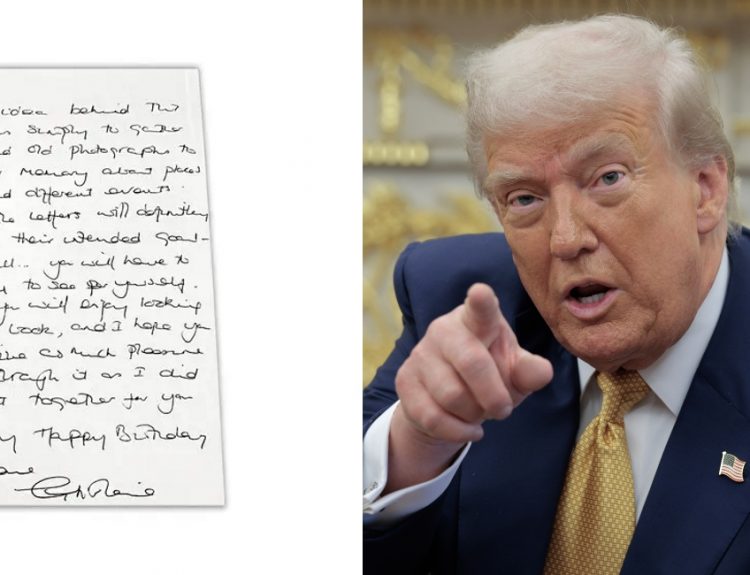 idea behind this
simply to gather
old photographs to
memory about places
different events.
letters will definitely
their intended goal-
... you will have to
to see for yourself.
will enjoy looking
book, and I hope you
as much pleasure
through it as I did
together for you
Happy Birthday